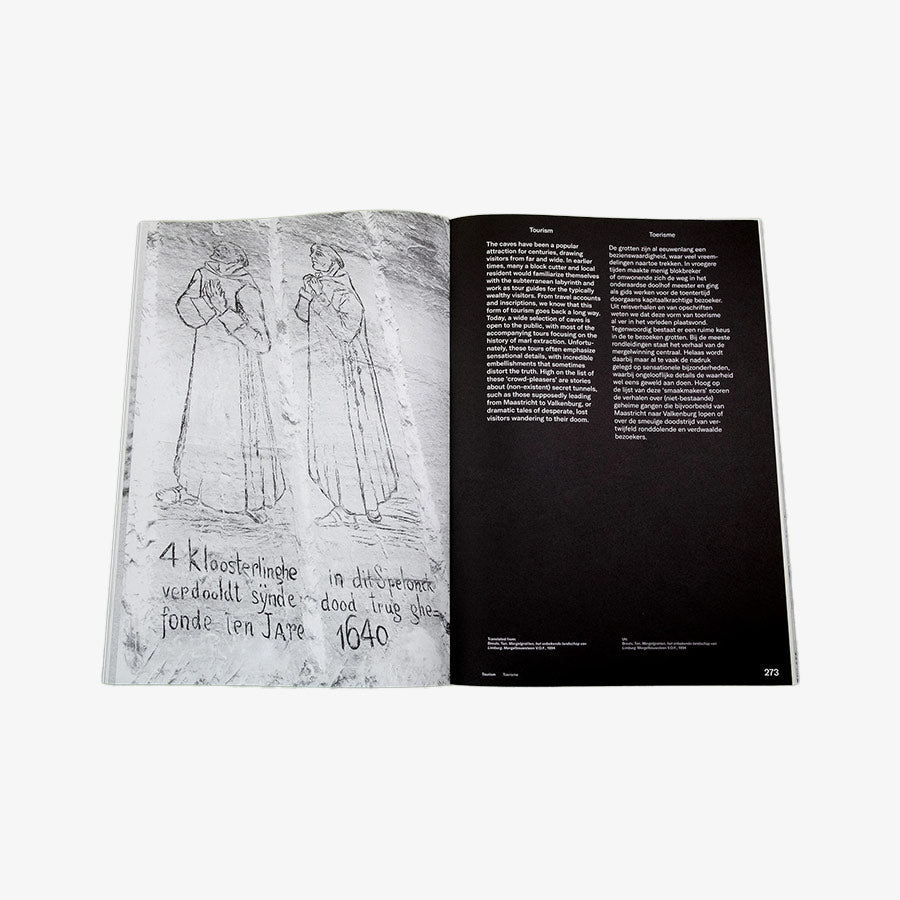 4 kloosterlinghe in dit Spelonck
verdooldt sÿnde dood trug ghe=
fonde ten Jare 1640
Tourism
The caves have been a popular
attraction for centuries, drawing
visitors from far and wide. In earlier
times, many a block cutter and local
resident would familiarize themselves
with the subterranean labyrinth and
work as tour guides for the typically
wealthy visitors. From travel accounts
and inscriptions, we know that this
form of tourism goes back a long way.
Today, a wide selection of caves is
open to the public, with most of the
accompanying tours focusing on the
history of marl extraction. Unfortu-
nately, these tours often emphasize
sensational details, with incredible
embellishments that sometimes
distort the truth. High on the list of
these 'crowd-pleasers' are stories
about (non-existent) secret tunnels,
such as those supposedly leading
from Maastricht to Valkenburg, or
dramatic tales of desperate, lost
visitors wandering to their doom.
Toerisme
De grotten zijn al eeuwenlang een
bezienswaardigheid, waar veel vreem-
delingen naartoe trekken. In vroegere
tijden maakte menig blokbreker
of omwonende zich de weg in het
onderaardse doolhof meester en ging
als gids werken voor de toentertijd
doorgaans kapitaalkrachtige bezoeker.
Uit reisverhalen en van opschriften
weten we dat deze vorm van toerisme
al ver in het verleden plaatsvond.
Tegenwoordig bestaat er een ruime keus
in de te bezoeken grotten. Bij de meeste
rondleidingen staat het verhaal van de
mergelwinning centraal. Helaas wordt
daarbij maar al te vaak de nadruk
gelegd op sensationele bijzonderheden,
waarbij ongelooflijke details de waarheid
wel eens geweld aan doen. Hoog op
de lijst van deze 'smaakmakers' scoren
de verhalen over (niet-bestaande)
geheime gangen die bijvoorbeeld van
Maastricht naar Valkenburg lopen of
over de smeuïge doodstrijd van ver-
twijfeld ronddolende en verdwaalde
bezoekers.
Translated from:
Breuls, Ton. Mergelgrotten, het onbekende landschap van
Limburg. Mergelbouwsteen V.O.F., 1994
Uit:
Breuls, Ton. Mergelgrotten, het onbekende landschap van
Limburg. Mergelbouwsteen V.O.F., 1994
Tourism Toerisme
273